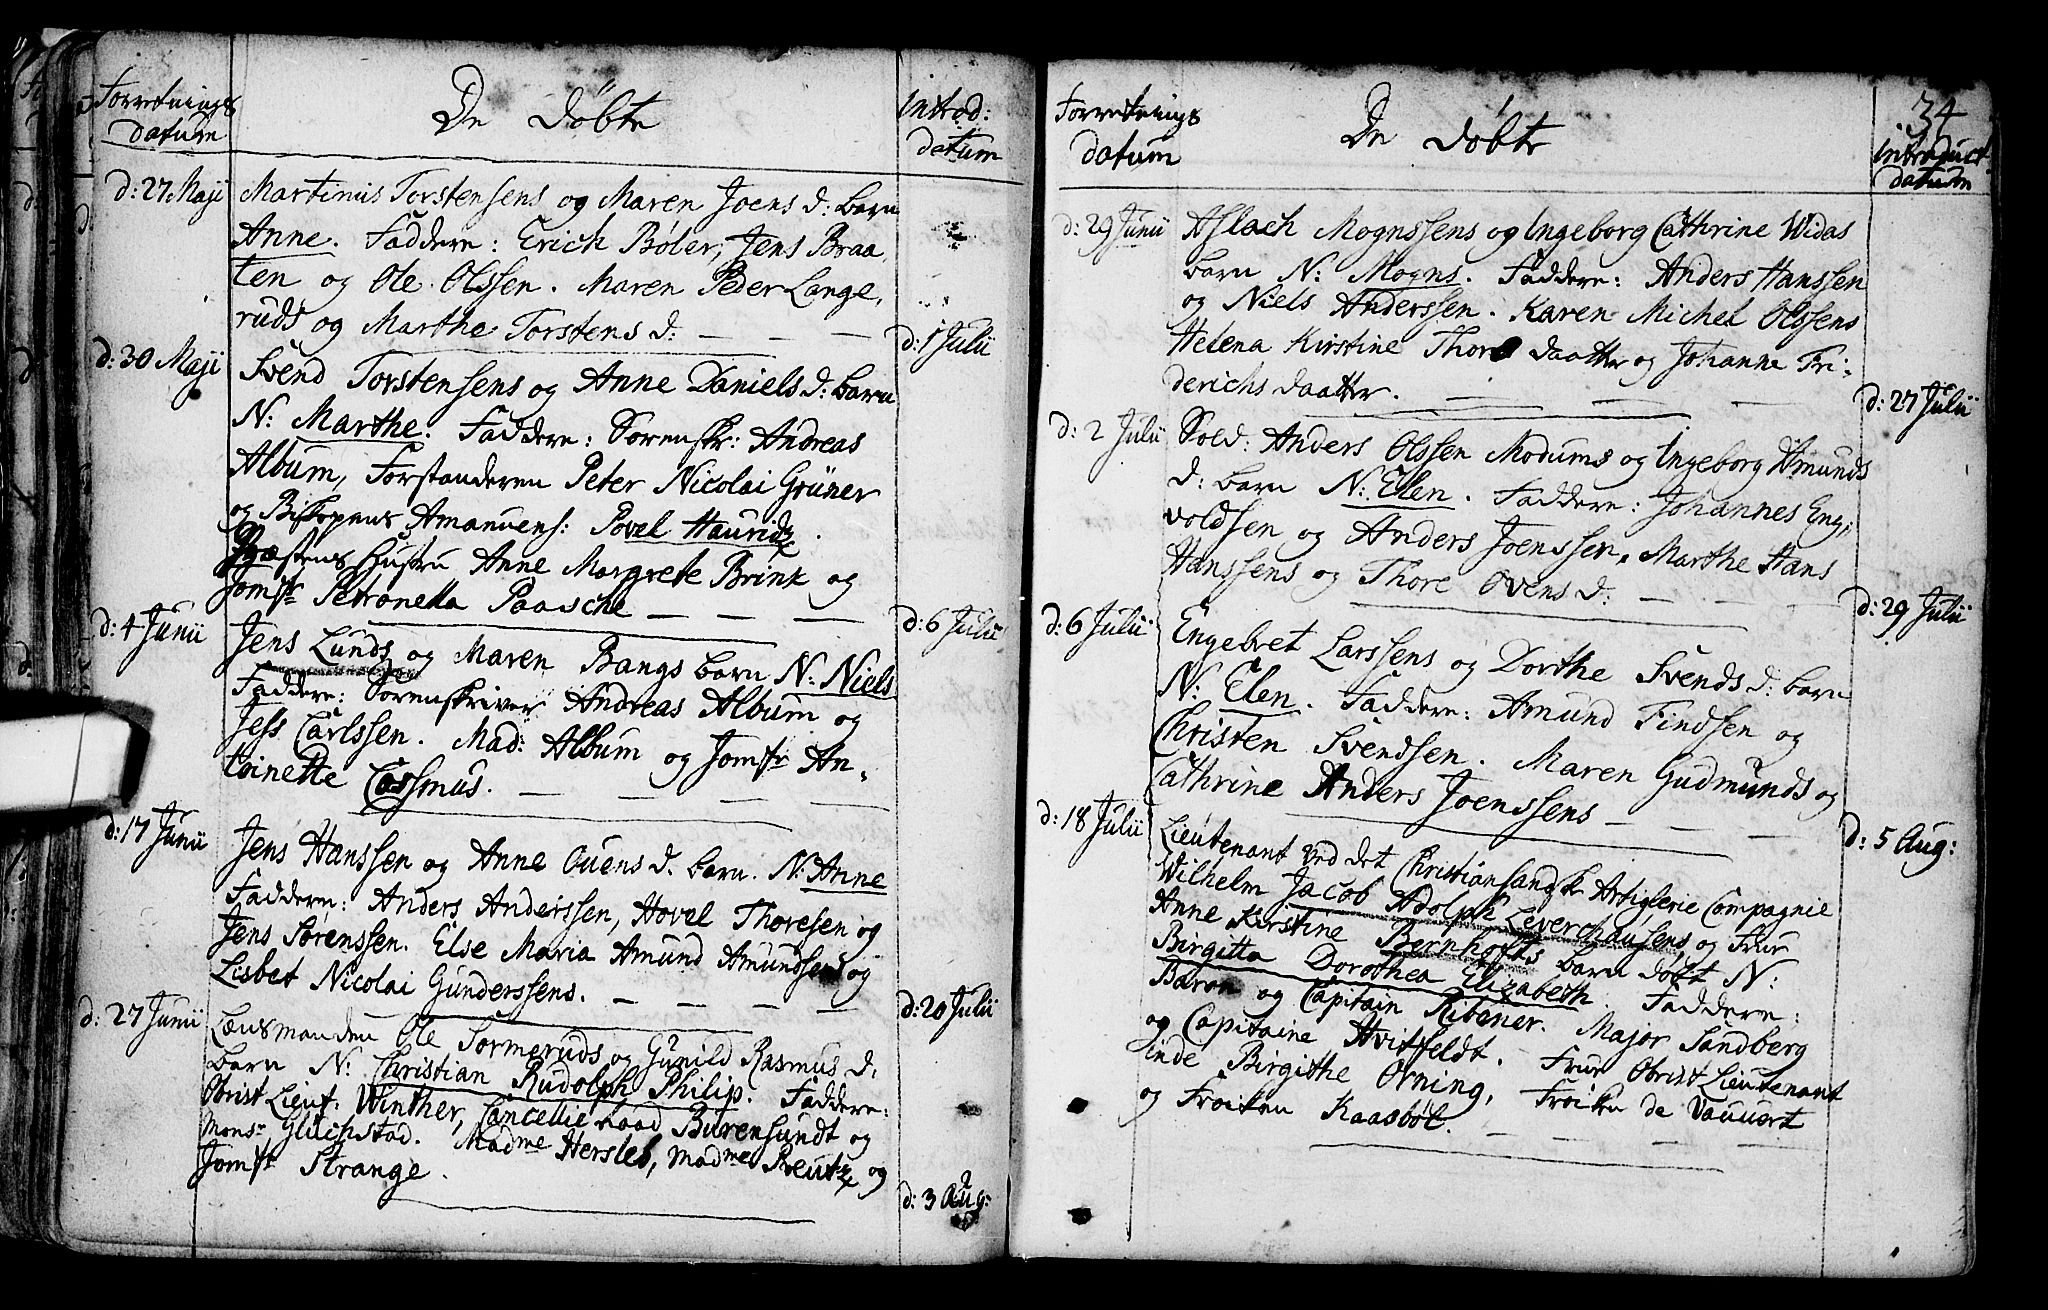 Forretnings
datum
De Døbte
Introd:
datum
d: 27 Maji
Martinus Torstensens og Maren Joens d: barn
Anne. Faddere: Erich Bøler, Jens Braa
ten og Ole Olssen. Maren Peder Lange,
ruds og Marthe Torstens d. — — —
d: 1 Julii
d: 30 Maji
Svend Torstensens og Anne Daniels d: barn
N: Marthe. Faddere: Sorenskr: Andreas
Album, Forstanderen Peter Nicolai Grüner
og Biskopens Amanuens: Povel Hauridz.
Præstens Hustru Anne Margrete Brink og
Jomfr Petronella Paasche — — —
d: 6 Julii
d: 4 Junii
Jens Lunds og Maren Bangs barn N: Niels
Faddere: Sorenskriver Andreas Album og
Jess Carlssen. Mad: Album og Jomfr An,
toinette Cassmus. — — — —
d: 17 Junii
Jens Hanssen og Anne Ouens d. barn. N: Anne
Faddere: Anders Anderssen, Hovel Thoresen og
Jens Sørenssen. Else Maria Amund Amundsens og
Lisbet Nicolai Gunderssens. — — — —
d: 20 Julii
d: 27 Junii
Lænsmanden Ole Sormeruds og Gunild Rasmus d.
barn N: Christian Rudolph Philip. Faddere:
Obrist Lieut: Winther, Cancellie Raad Burensundt og
Monsr Gluchstad. Madme Hersleb, Madme Breutz og
Jomfr Strange.
d: 3 Aug:
34
Forretnings
datum
De Døbte
Introduct
datum
d: 29 Junii
Aslach Mognssens og Ingeborg Cathrine Widas
barn N: Mogns. Faddere: Anders Hanssen
og Niels Anderssen. Karen Michel Olssens
Helena Kirstine Thore daatter og Johanne Fri-
derichs daatter. — — — —
d: 27 Julii
d: 2 Julii
Sold: Anders Olssen Modums og Ingeborg Amunds
d: barn N: Elen. Faddere: Johannes Eng,
voldsen og Anders Joenssen. Marthe Hans
Hanssens og Thore Ovens d. — —
d: 29 Julii
d: 6 Julii
Engebret Larssens og Dorthe Svends d: barn
N: Elen. Faddere: Amund Findsen og
Christen Svendsen. Maren Gudmunds og
Cathrine Anders Joenssens — — —
d: 5 Aug:
d: 18 Julii
Lieutenant ved det Christiansandske Artiglerie Compagnie
Wilhelm Jacob Adolph Leverchausens og Frue
Anne Kirstine Bernhofts barn døbt N:
Birgitta Dorothea Elizabeth. Faddere:
Baron og Capitain Ribener. Major Sandberg
og Capitaine Hvitfeldt. Frue Obrist Lieutenant
inde Birgithe Orning, Frøiken de Vauuert
og Frøiken Kaasbøl. — — — —